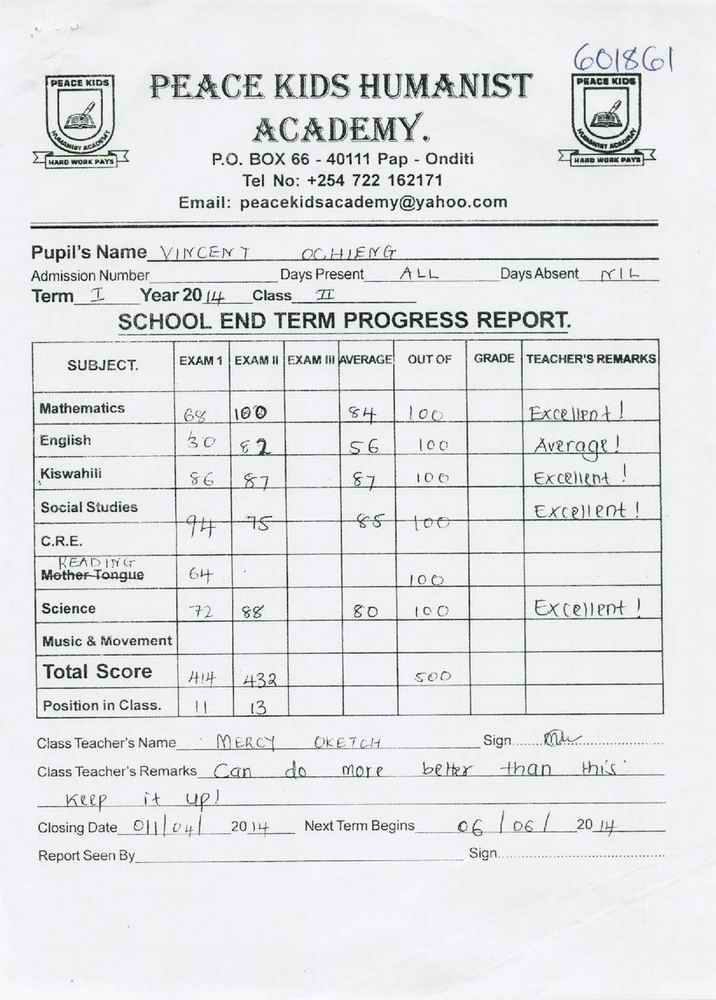 601861
PEACE KIDS
HUMANIST ACADEMY
HARD WORK PAYS
PEACE KIDS HUMANIST
ACADEMY.
P.O. BOX 66 - 40111 Pap - Onditi
Tel No: +254 722 162171
Email: peacekidsacademy@yahoo.com
PEACE KIDS
HUMANIST ACADEMY
HARD WORK PAYS
Pupil's Name VINCENT OCHIENG
Admission Number Days Present ALL Days Absent NIL
Term I Year 2014 Class II
SCHOOL END TERM PROGRESS REPORT.
SUBJECT. EXAM 1 EXAM II EXAM III AVERAGE OUT OF GRADE TEACHER'S REMARKS
Mathematics 68 100 84 100 Excellent!
English 30 82 56 100 Average!
Kiswahili 86 87 87 100 Excellent!
Social Studies 94 75 85 100 Excellent!
C.R.E.
READING
Mother Tongue 64 100
Science 72 88 80 100 Excellent!
Music & Movement
Total Score 414 432 500
Position in Class. 11 13
Class Teacher's Name MERCY OKETCH Sign
Class Teacher's Remarks Can do more better than this
Keep it up!
Closing Date 011/04/ 2014 Next Term Begins 06/06/ 2014
Report Seen By Sign